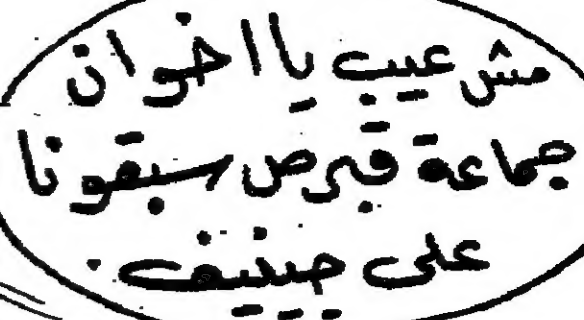 مش عيب يا اخوان
جماعة قبرص سبقونا
على جينيف.